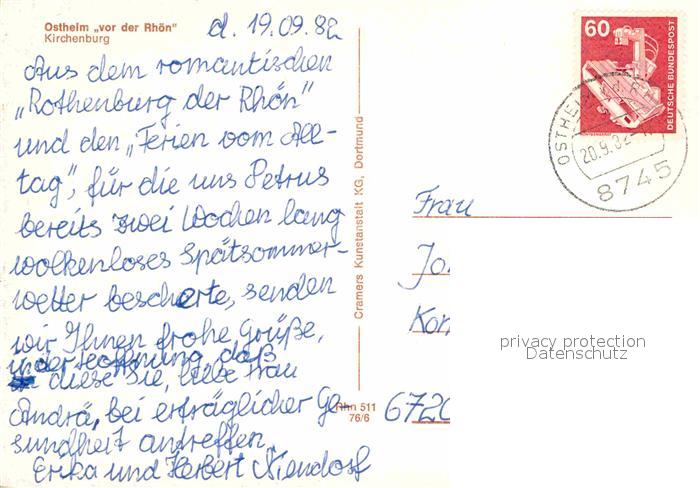 Ostheim „vor der Rhön"
Kirchenburg
d. 19.09.82
Aus dem romantischen
„Rothenburg der Rhön"
und den „Ferien vom All-
tag", für die uns Petrus
bereits zwei Wochen lang
wolkenloses Spätsommer-
wetter bescherte, senden
wir Ihnen frohe Grüße,
in der Hoffnung, daß
diese Sie, liebe Frau
Andrä, bei erträglicher Ge-
sundheit antreffen.
Erika und Herbert Niendorf
Cramers Kunstanstalt KG, Dortmund
Rhn 511
76/6
60
DEUTSCHE BUNDESPOST
OSTHEIM
20.9.82
8745
Frau
Jo
Kon
privacy protection
Datenschutz
6720